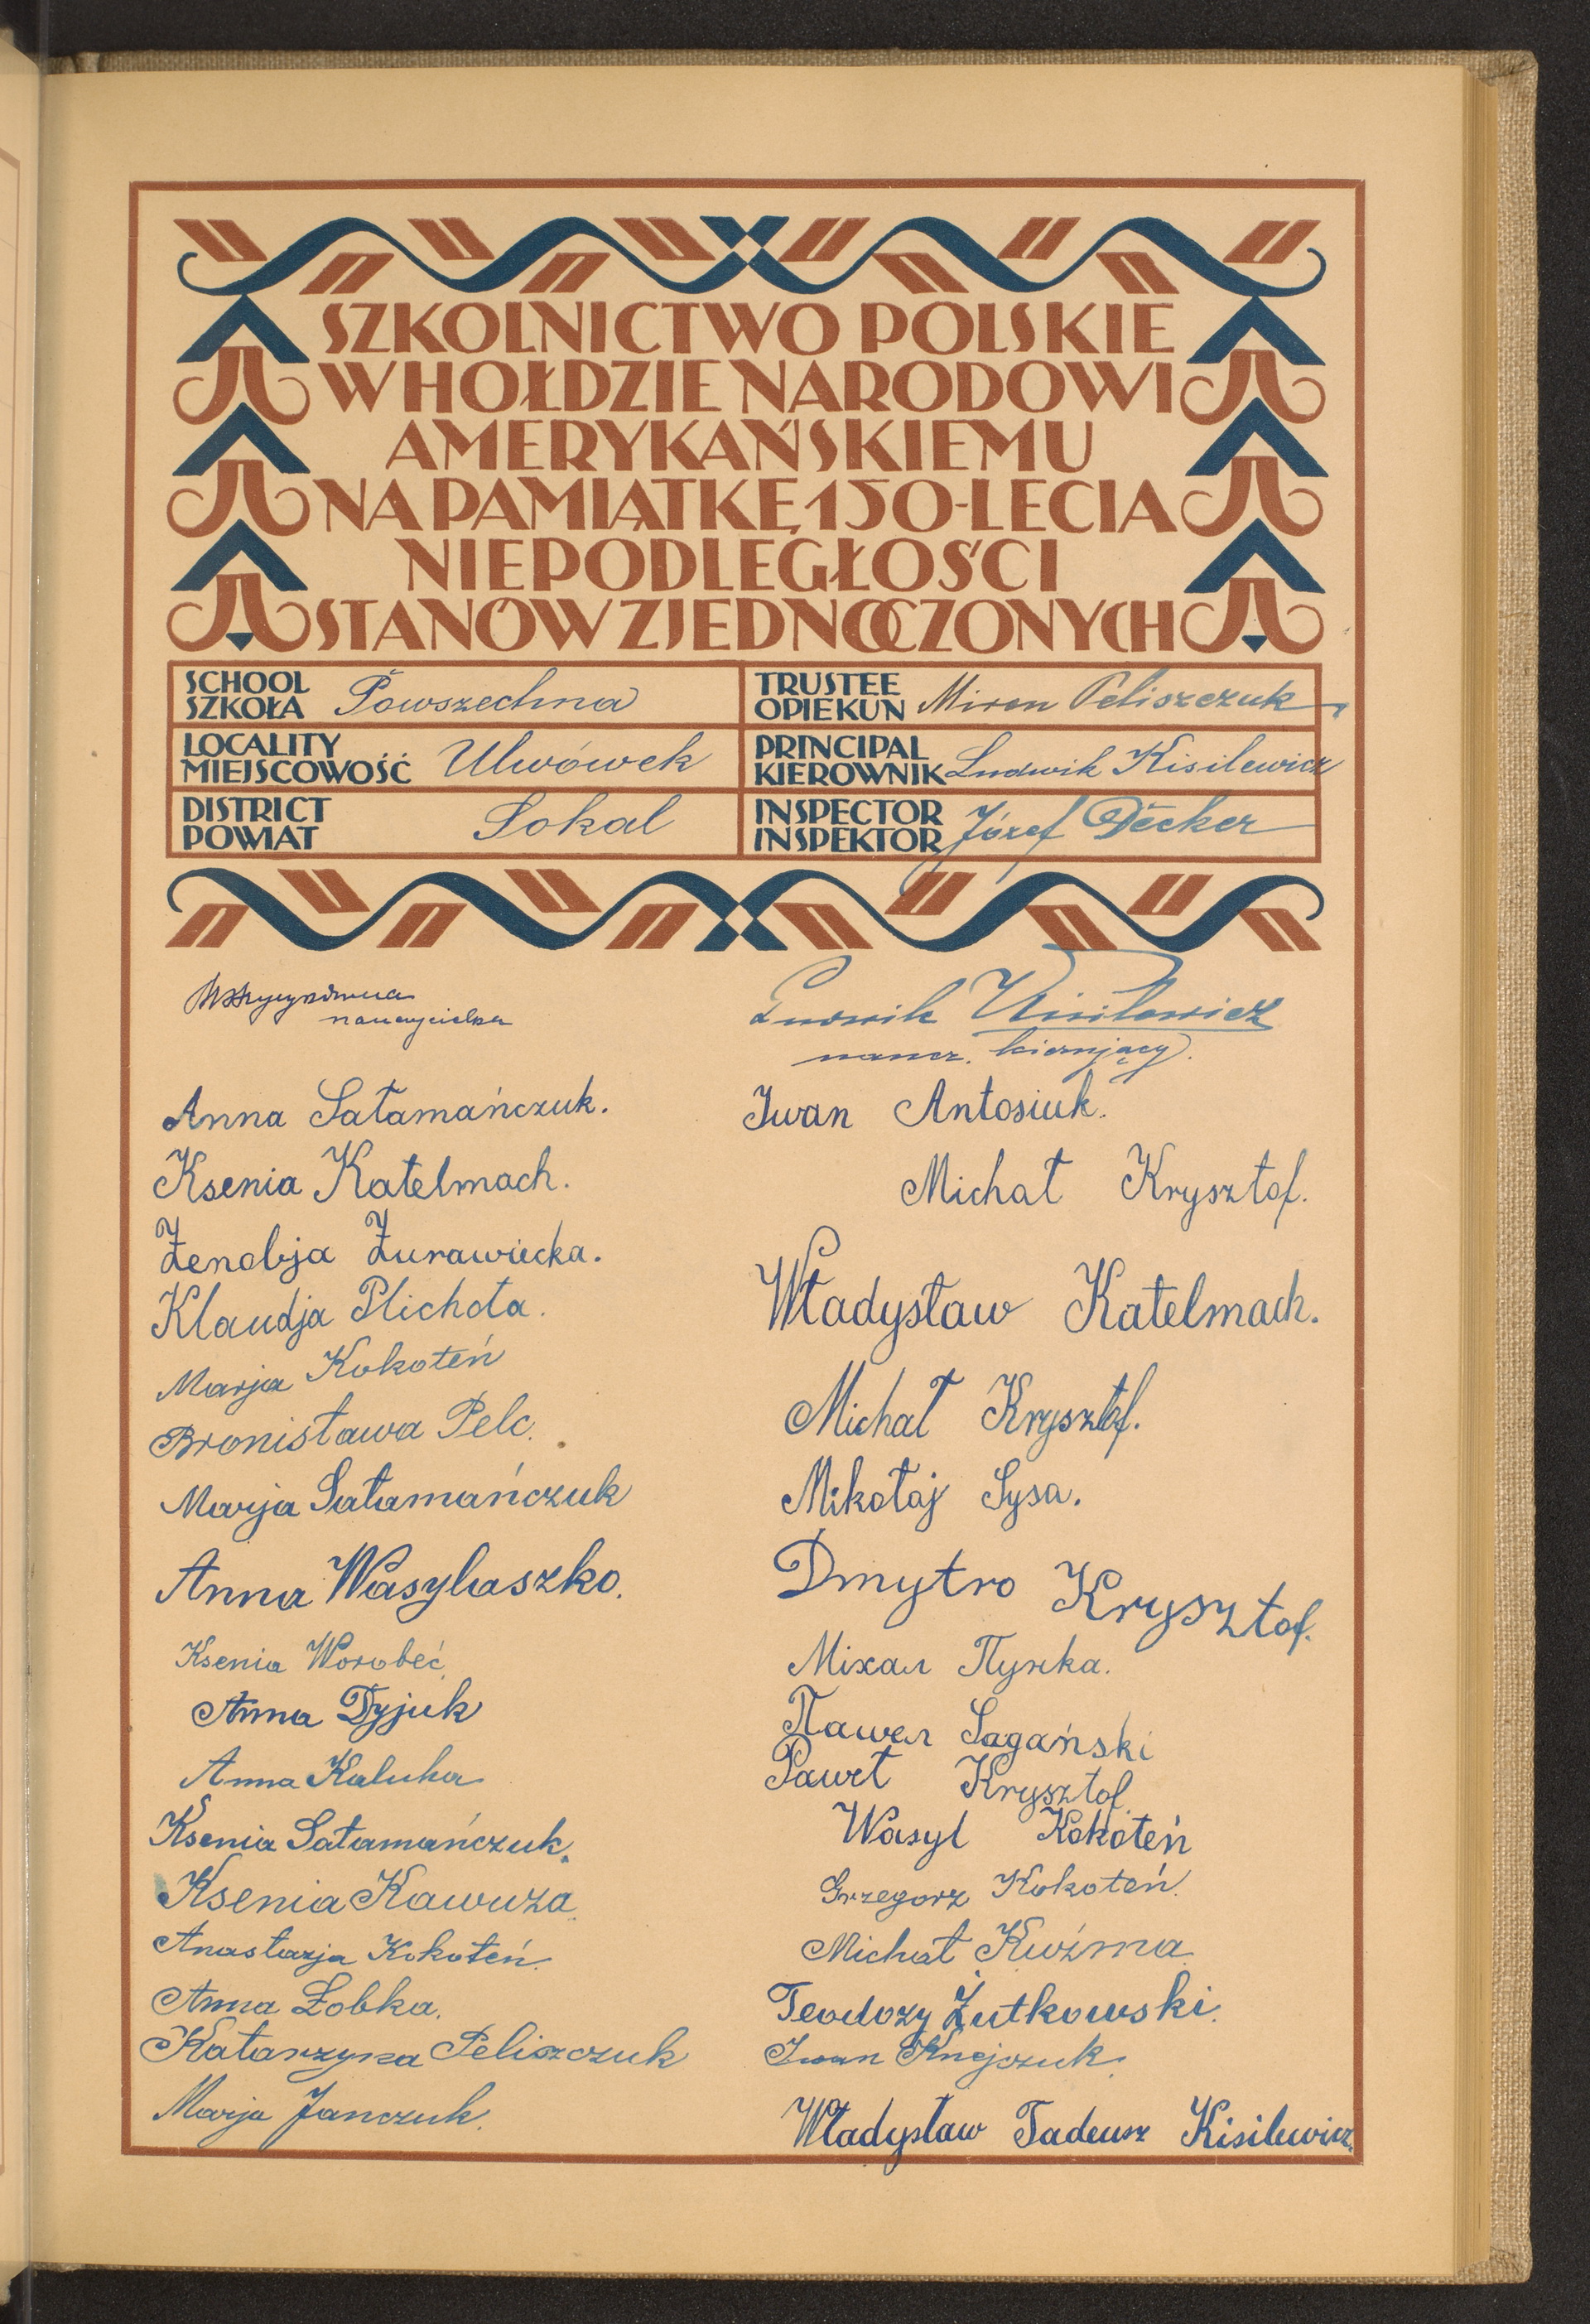 SZKOLNICTWO POLSKIE
W HOŁDZIE NARODOWI
AMERYKAŃSKIEMU
NA PAMIĄTKĘ 150-LECIA
NIEPODLEGŁOŚCI
STANÓW ZJEDNOCZONYCH
SCHOOL
SZKOŁA Powszechna
TRUSTEE
OPIEKUN Miron Peliszczuk
LOCALITY
MIEJSCOWOŚĆ Ulwówek
PRINCIPAL
KIEROWNIK Ludwik Kisilewicz
DISTRICT
POWIAT Sokal
INSPECTOR
INSPEKTOR Józef Decker
nauczycielka
Anna Sałamańczuk.
Ksenia Katelmach.
Zenobja Żurawiecka.
Klaudja Plichota.
Marja Kokoteń
Bronisława Pelc.
Marja Sałamańczuk
Anna Wasylaszko.
Ksenia Worobeć.
Anna Dyjuk
Anna Kaluha
Ksenia Sałamańczuk.
Ksenia Kawuza.
Anastazja Kokoteń.
Anna Łobka.
Katarzyna Peliszczuk
Marja Janczuk.
Ludwik Kisilewicz
naucz. kierujący.
Iwan Antosiuk.
Michał Krysztof.
Władysław Katelmach.
Michał Krysztof.
Mikołaj Sysa.
Dmytro Krysztof.
Михал
Павел Sagański
Paweł Krysztof.
Wasyl Kokoteń
Grzegorz Kokoteń.
Michał Kuźma.
Teodozy Żutkowski.
Iwan Knejczuk.
Władysław Tadeusz Kisilewicz.